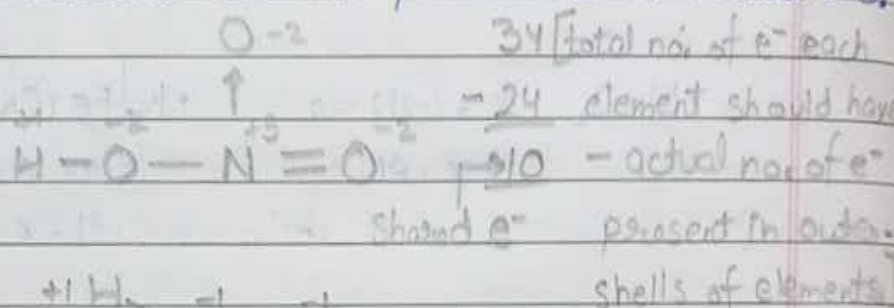 O -2
34 [total no. of e⁻ each
↑
- 24 element should hav
H - O -2 - N +5 = O -2
10 - actual no. of e⁻
shared e⁻ present in outer
+1 H -1 -1
shells of elements